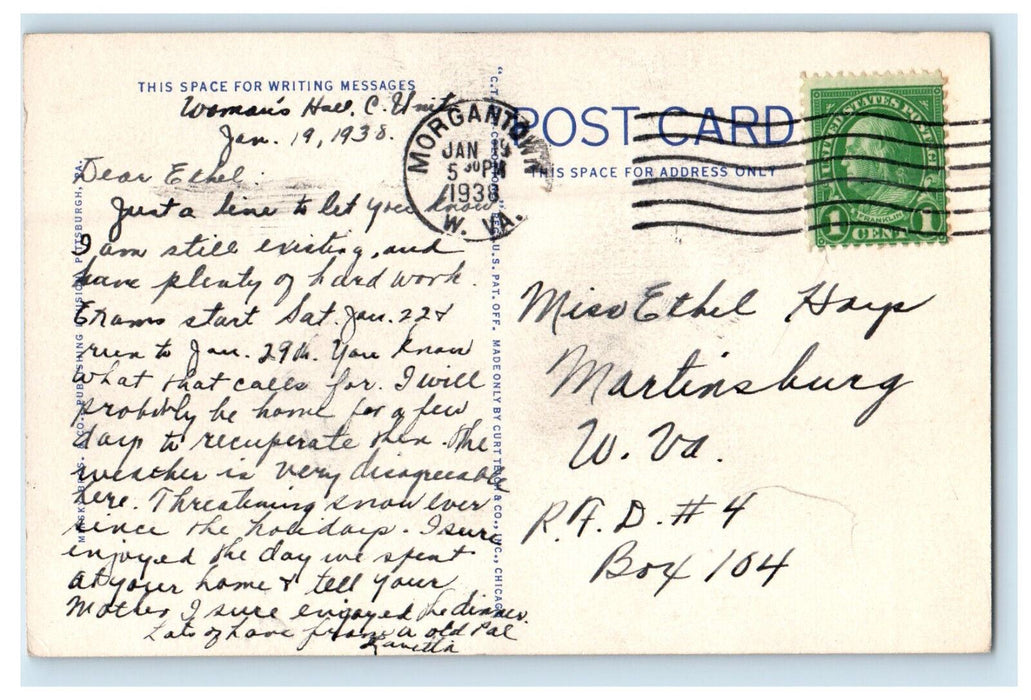 THIS SPACE FOR WRITING MESSAGES
Woman's Hall, C. Unit
Jan. 19, 1938.
Dear Ethel:
Just a line to let you know
I am still existing, and
have plenty of hard work.
Exams start Sat. Jan. 22 &
run to Jan. 29th. You know
what that calls for. I will
probably be home for a few
days to recuperate then. The
weather is very disagreeable
here. Threatening snow ever
since the holidays. I sure
enjoyed the day we spent
at your home & tell your
Mother I sure enjoyed the dinner.
Lots of love from a old Pal
PUBLISHING DIVISION, PITTSBURGH, PA.
MORGANTOWN
JAN 19
5 30 PM
1938
W. VA.
REG. U.S. PAT. OFF. MADE ONLY BY CURT TEICH & CO., INC., CHICAGO
POST CARD
THIS SPACE FOR ADDRESS ONLY
UNITED STATES POSTAGE
FRANKLIN
1 CENT 1
Miss Ethel Hays
Martinsburg
W. Va.
R.F.D. #4
Box 104